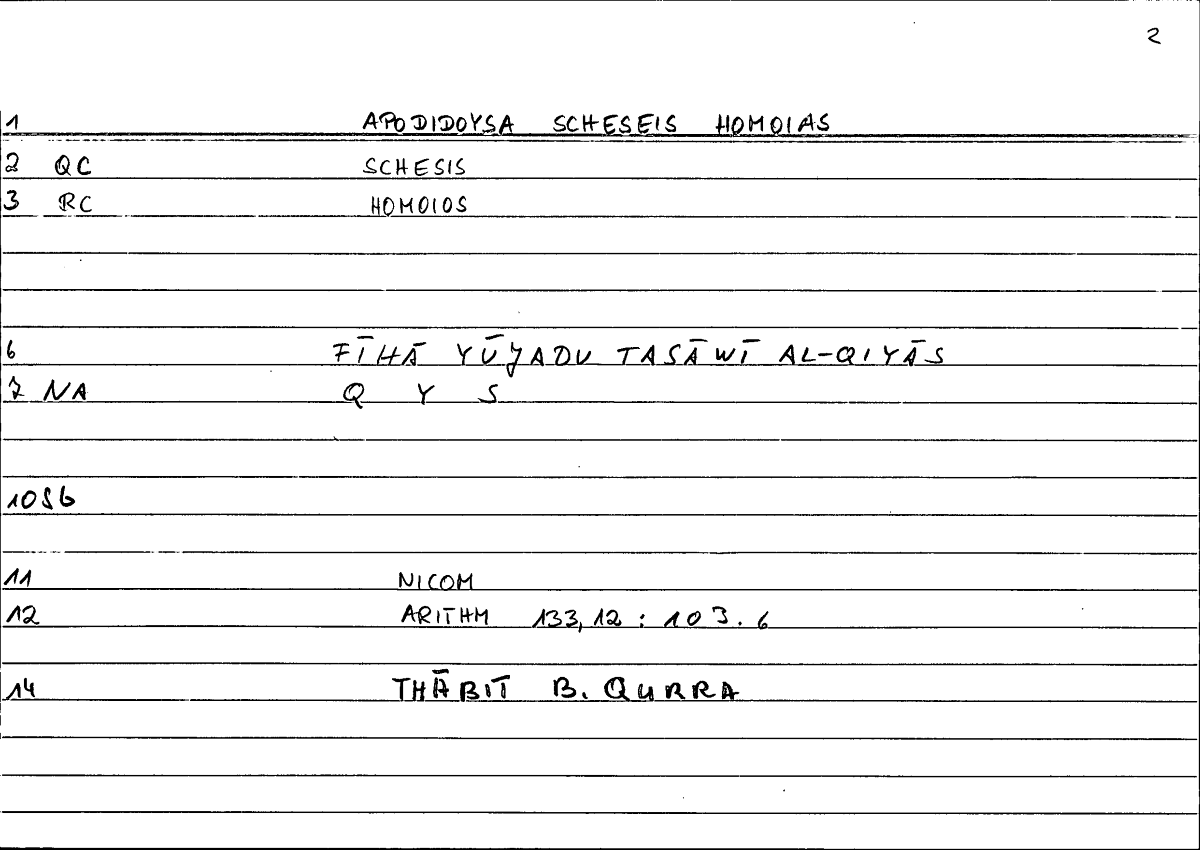 2
1 APODIDOYSA SCHESEIS HOMOIAS
2 QC SCHESIS
3 RC HOMOIOS
6 FĪHĀ YŪJADU TASĀWĪ AL-QIYĀS
7 NA Q Y S
10 S6
11 NICOM
12 ARITHM 133,12 : 103.6
14 THĀBIT B. QURRA